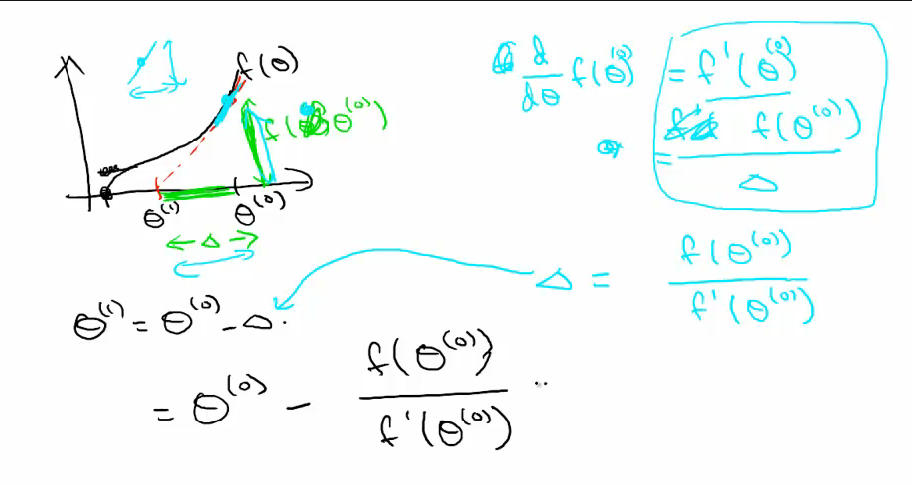 f(θ)
f(θ⁽⁰⁾)
θ⁽¹⁾ θ⁽⁰⁾
← Δ →
d/dθ f(θ⁽⁰⁾) = f'(θ⁽⁰⁾)
= f(θ⁽⁰⁾) / Δ
Δ = f(θ⁽⁰⁾) / f'(θ⁽⁰⁾)
θ⁽¹⁾ = θ⁽⁰⁾ - Δ.
= θ⁽⁰⁾ - f(θ⁽⁰⁾) / f'(θ⁽⁰⁾)